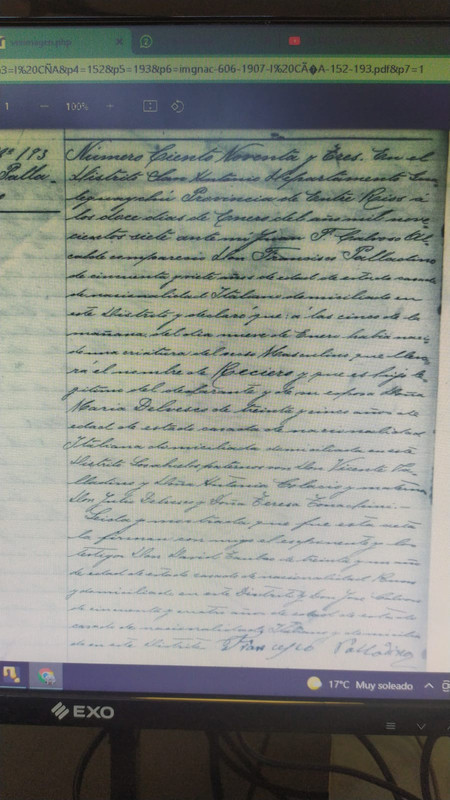 visorimagen.php
p3=I%20CÑA&p4=152&p5=193&p6=imgnac-606-1907-I%20CÃ�A-152-193.pdf&p7=1
1 — 100% +
Nº 193
Numero Ciento Noventa y Tres. En el
Distrito San Antonio Departamento
Provincia de Entre Rios a
los doce dias de Enero del año mil nove
cientos siete ante mi Juan F. Al
calde comparecio Don Francisco Palladino
de cincuenta y siete años de edad de estado casado
de nacionalidad Italiano domiciliado en
este Distrito y declaró que: a las cinco de la
mañana del dia nueve de Enero habia naci
do una criatura del sexo Masculino que lleva
rá el nombre de y que es hijo le
gitimo del declarante y de su esposa Doña
Maria de treinta y cinco años de
edad de estado casada de nacionalidad
Italiana domiciliada en este
Distrito Los abuelos paternos son Don Vicente Pa
lladino y Doña Antonia y maternos
Don y Doña Teresa
Leida y mostrada que fue esta acta
la firman con migo el exponente y los
testigos Don David de treinta y un año
de edad de estado casado de nacionalidad Ruso
y domiciliado en este Distrito y Don José
de cincuenta y cuatro años de edad de estado
casado de nacionalidad Italiano y domicilia
do en este Distrito Francesco Palladino
17°C Muy soleado
EXO